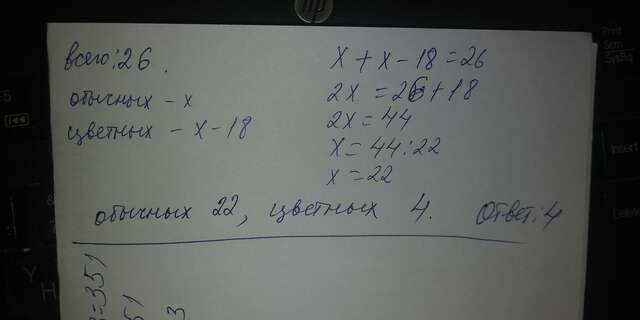 всего: 26.
обычных - x
цветных - x - 18
x + x - 18 = 26
2x = 26 + 18
2x = 44
x = 44 : 22
x = 22
обычных 22, цветных 4. Ответ: 4
=351
51
3
hp
Insert
Y
H